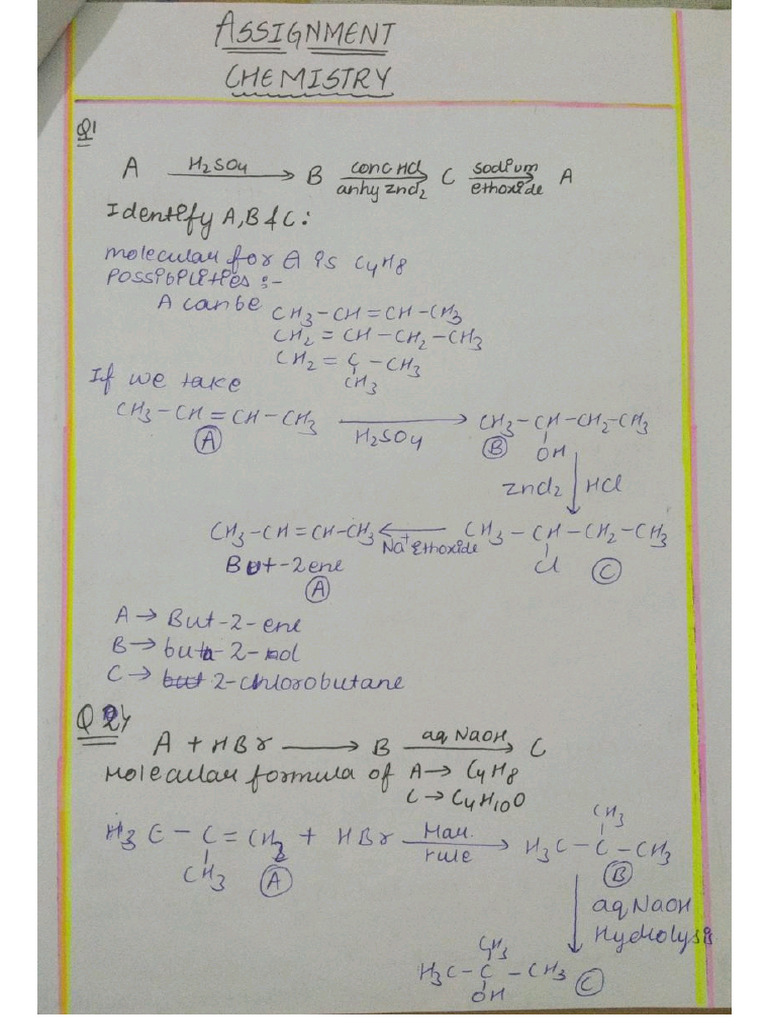 ASSIGNMENT
CHEMISTRY
Q1
A H2SO4 → B conc HCl anhy ZnCl2 → C sodium ethoxide → A
Identify A, B & C:
molecular for A is C4H8
possibilities :-
A can be CH3-CH=CH-CH3
CH2=CH-CH2-CH3
CH2=C-CH3
CH3
If we take
CH3-CH=CH-CH3 H2SO4 → CH3-CH-CH2-CH3
A B OH
ZnCl2 HCl
CH3-CH=CH-CH3 ← Na+ Ethoxide CH3-CH-CH2-CH3
But-2ene Cl C
A
A → But-2-ene
B → 2-ol
C → 2-chlorobutane
Q 2)
A + HBr → B aq NaOH → C
Molecular formula of A → C4H8
C → C4H10O
CH3
H3C-C=CH2 + HBr Mar. rule → H3C-C-CH3
CH3 A B
aq NaOH
Hydrolysis
CH3
H3C-C-CH3 C
OH